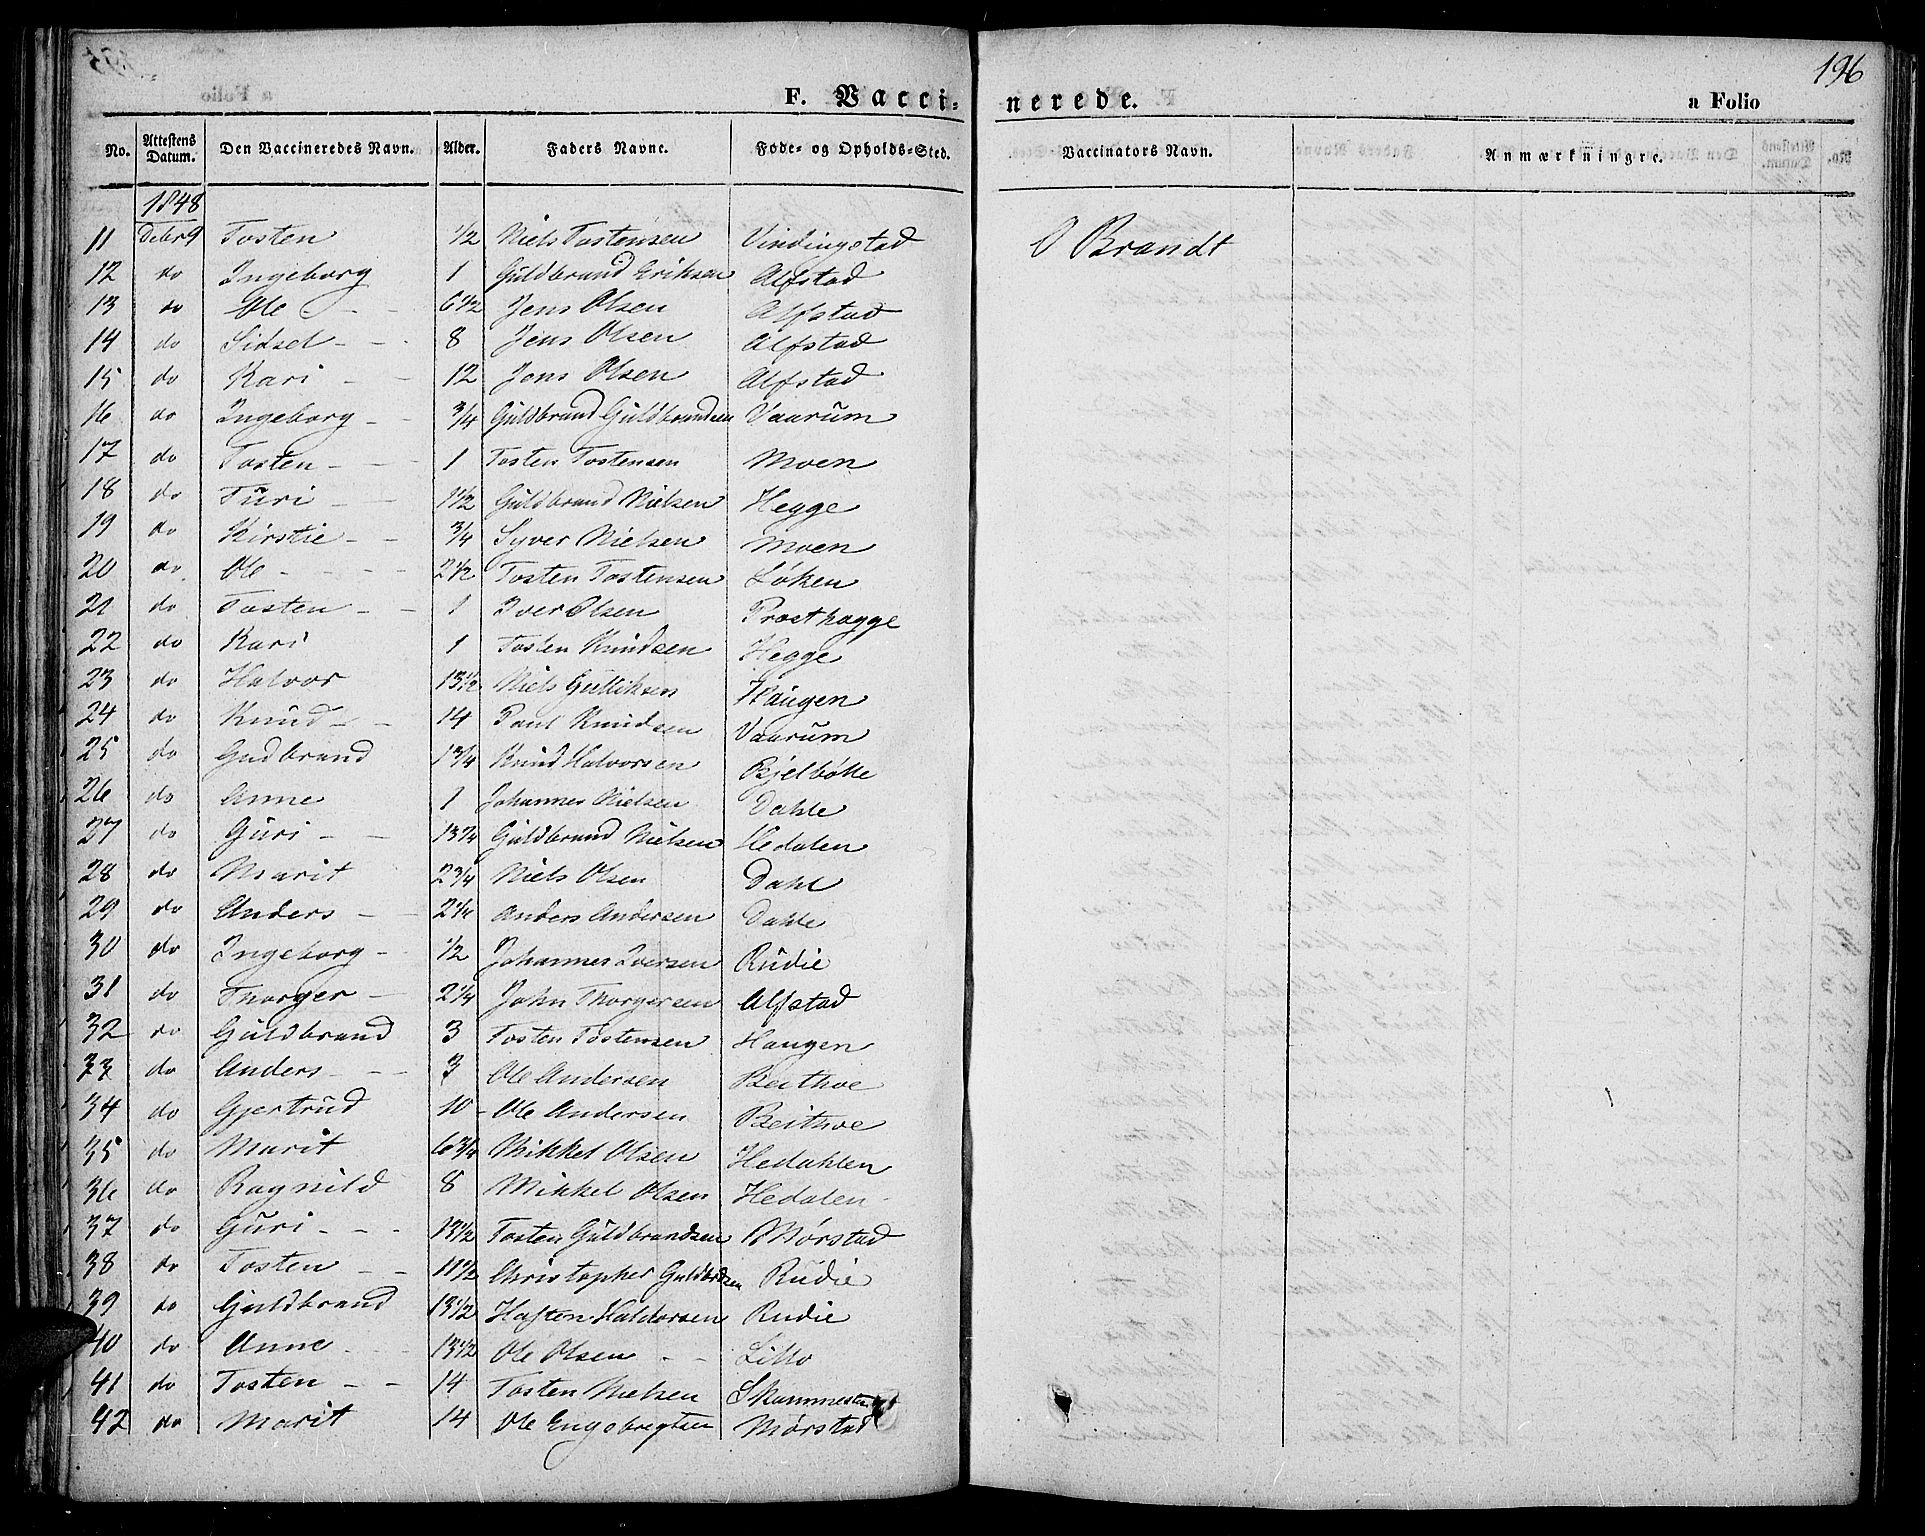 196
F. Vaccinerede. a Folio
No. Attestens Datum. Den Vaccineredes Navn. Alder. Faders Navne. Føde- og Opholds-Sted. Vaccinators Navn. Anmærkningre.
1848
11 Debr 9 Tosten 1/2 Niels Tostensen Vindingstad O Brandt
12 do Ingeborg 1 Guldbrand Eriksen Alfstad
13 do Ole - - 6 1/2 Jens Olsen Alfstad
14 do Sidsel - - 8 Jens Olsen Alfstad
15 do Kari - - 12 Jens Olsen Alfstad
16 do Ingeborg - - 3/4 Guldbrand Guldbrandsen Vaarum
17 do Tosten - - - 1 Tosten Tostensen Moen
18 do Turi - - 1 1/2 Guldbrand Nielsen Hegge
19 do Kirstie - - 3/4 Syver Nielsen Moen
20 do Ole - - - - 2 1/2 Tosten Tostensen Løken
21 do Tosten - - 1 Iver Olsen Prosthægge
22 do Kari 1 Tosten Knudsen Hegge
23 do Halvor 13 1/2 Niels Gulliksen Haugen
24 do Knud - - 14 Paul Knudsen Vaarum
25 do Gudbrand 1 3/4 Knud Halvorsen Bjelbølle
26 do Anne 1 Johannes Nielsen Dahle
27 do Guri - - 13 3/4 Guldbrand Nielsen Hedalen
28 do Marit 2 3/4 Niels Olsen Dahl
29 do Anders - - 2 1/4 Anders Andersen Dahle
30 do Ingeborg - 1/2 Johannes Iversen Rudie
31 do Thorger - 2 1/4 John Thorgersen Alfstad
32 do Guldbrand 3 Tosten Tostensen Haugen
33 do Anders - - - 3 Ole Andersen Beithoe
34 do Gjertrud 10 - Ole Andersen Beithoe
35 do Marit 6 3/4 Mikkel Olsen Hedahlen
36 do Ragnild 8 Mikkel Olsen Hedalen
37 do Guri - - - 13 1/2 Tosten Guldbrandsen Mørstad
38 do Tosten - - 11 1/2 Christopher Guldbdsen Rudie
39 do Guldbrand 13 1/2 Haften Haldorsen Rudie
40 do Anne - - 13 1/2 Ole Olsen - - Lillo
41 do Tosten - - 14 Tosten Nielsen
42 do Marit 14 Ole Engebregtsen Mørstad